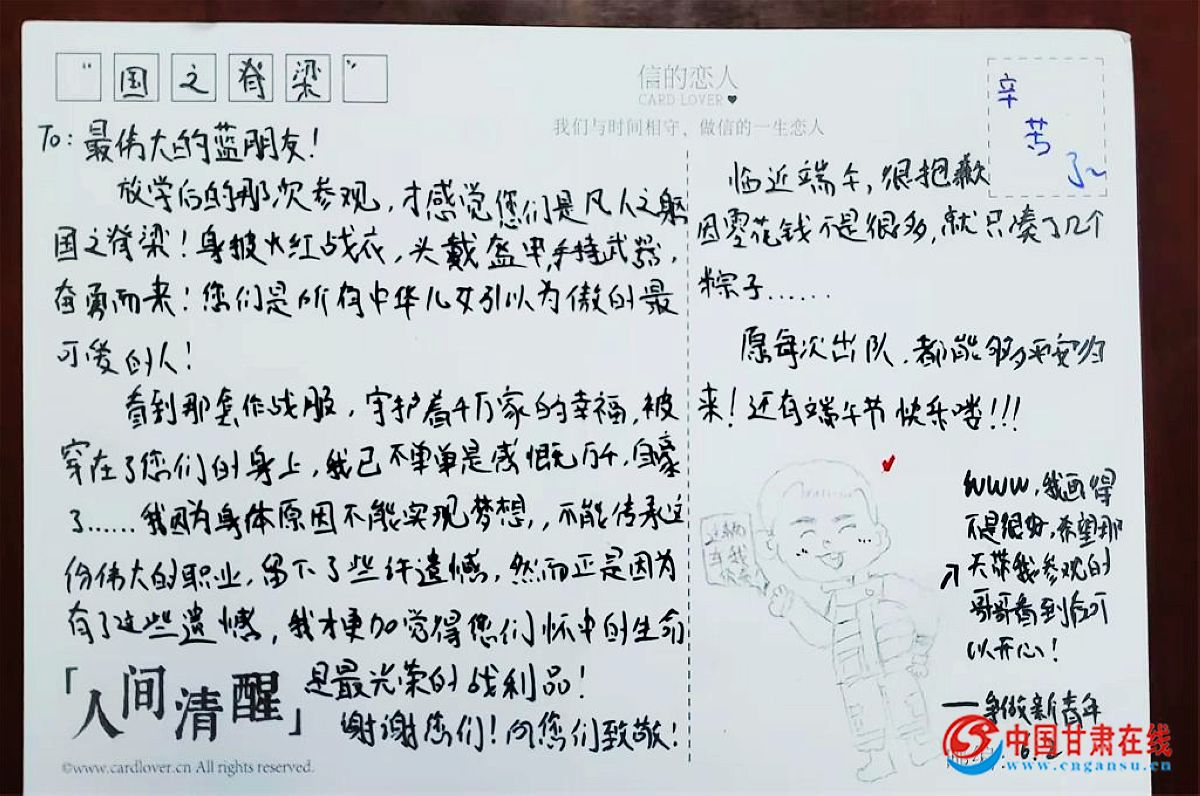 “国之脊梁”
信的恋人
CARD LOVER
我们与时间相守、做信的一生恋人
辛
苦
了~
To: 最伟大的蓝朋友！
放学后的那次参观，才感觉您们是凡人之躯
国之脊梁！身披火红战衣，头戴盔甲，手持武器，
奋勇而来！您们是所有中华儿女引以为傲的最
可爱的人！
看到那套作战服，守护着千万家的幸福，被
穿在了您们的身上，我已不单单是感慨万千，自豪
了……我因为身体原因不能实现梦想，，不能传承这
份伟大的职业，留下了些许遗憾，然而正是因为
有了这些遗憾，我才更加觉得您们怀中的生命
「人间清醒」是最光荣的战利品！
谢谢您们！向您们致敬！
©www.cardlover.cn All rights reserved.
临近端午，很抱歉
因零花钱不是很多，就只凑了几个
粽子……
愿每次出队，都能够平安归
来！还有端午节快乐喽！！！
www，我画得
不是很好，希望那
天带我参观的
哥哥看到后可
以开心！
—争做新青年
6.2
中国甘肃在线
www.cngansu.cn